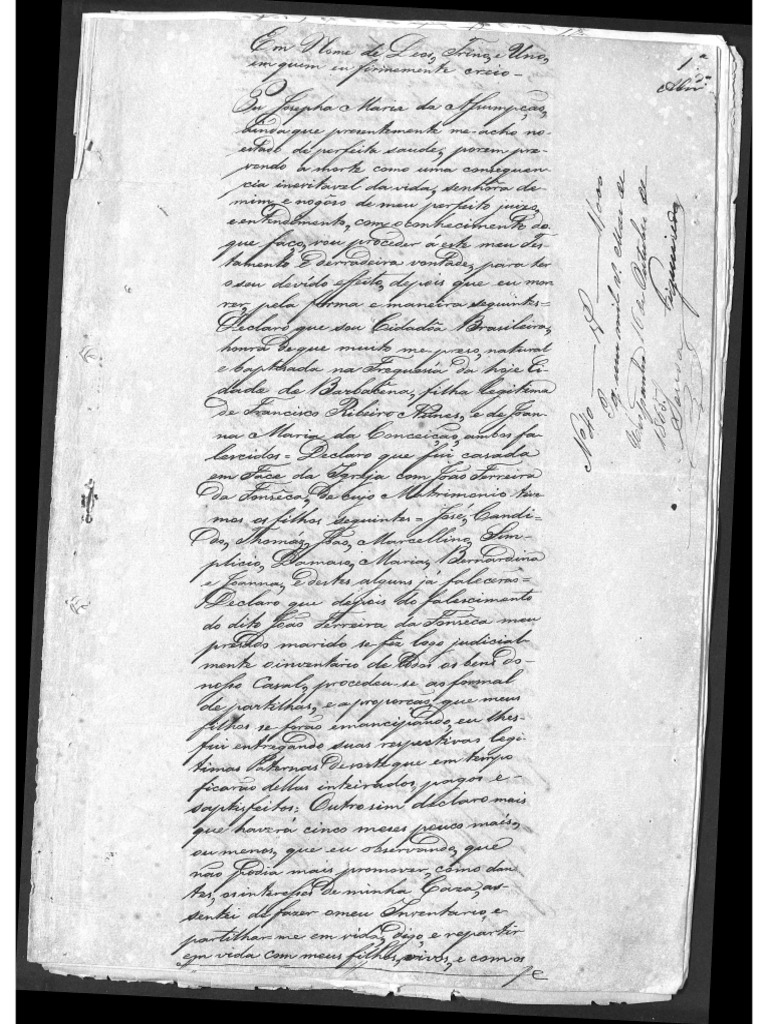 Em Nome de Deos, Trino, e Uno,
em quem eu firmemente creio -
Eu Josepha Maria da Assumpção,
ainda que presentemente me acho no
estado de perfeita saude, porem pre-
vendo a morte como uma consequen-
cia inevitavel da vida, senhora de
mim, e no gôso de meu perfeito juizo,
e entendimento, com o conhecimento do
que faço, vou proceder á este meu tes-
tamento e derradeira vontade, para ter
o seu devido effeito, depois que eu mor
rer, pela forma e maneira seguintes =
Declaro que sou Cidadôa Brasileira,
honra de que muito me preso, natural
e baptisada na Freguesia da hoje Ci-
dade de Barbacena, filha legitima
de Francisco Ribeiro Nunes, e de Joan-
na Maria da Conceição, ambos fa-
lescidos = Declaro que fui casada
em Face da Igreja com João Ferreira
da Fonsêca, de cujo Matrimonio tive-
mos os filhos seguintes = José, Candi-
do, Thomáz, João, Marcellino, Sim-
plicio, Damaso, Maria, Bernardina
e Joanna, e destes alguns já falecerão =
Declaro que depois do falescimento
do dito João Ferreira da Fonseca meu
presado marido se fêz logo judicial-
mente o inventario de todos os bens do
nosso Casal, procedeu-se ao formal
de partilhas, e a proporção que meus
filhos se forão emancipando, eu lhes
fui entregando suas respectivas legi-
timas Paternas de sorte que em tempo
ficarão dellas inteirados, pagos e
saptisfeitos = Outro sim declaro mais
que haverá cinco meses pouco mais,
ou menos, que eu observando, que
não podia mais promover, como dan-
tes, os interesses de minha Caza, as-
sentei de fazer o meu Inventario, e
partilhar-me em vida, digo, e repartir
em vida com meus filhos, vivos, e com os
1ª
Nº 40
Pg. um mil rs.
1865